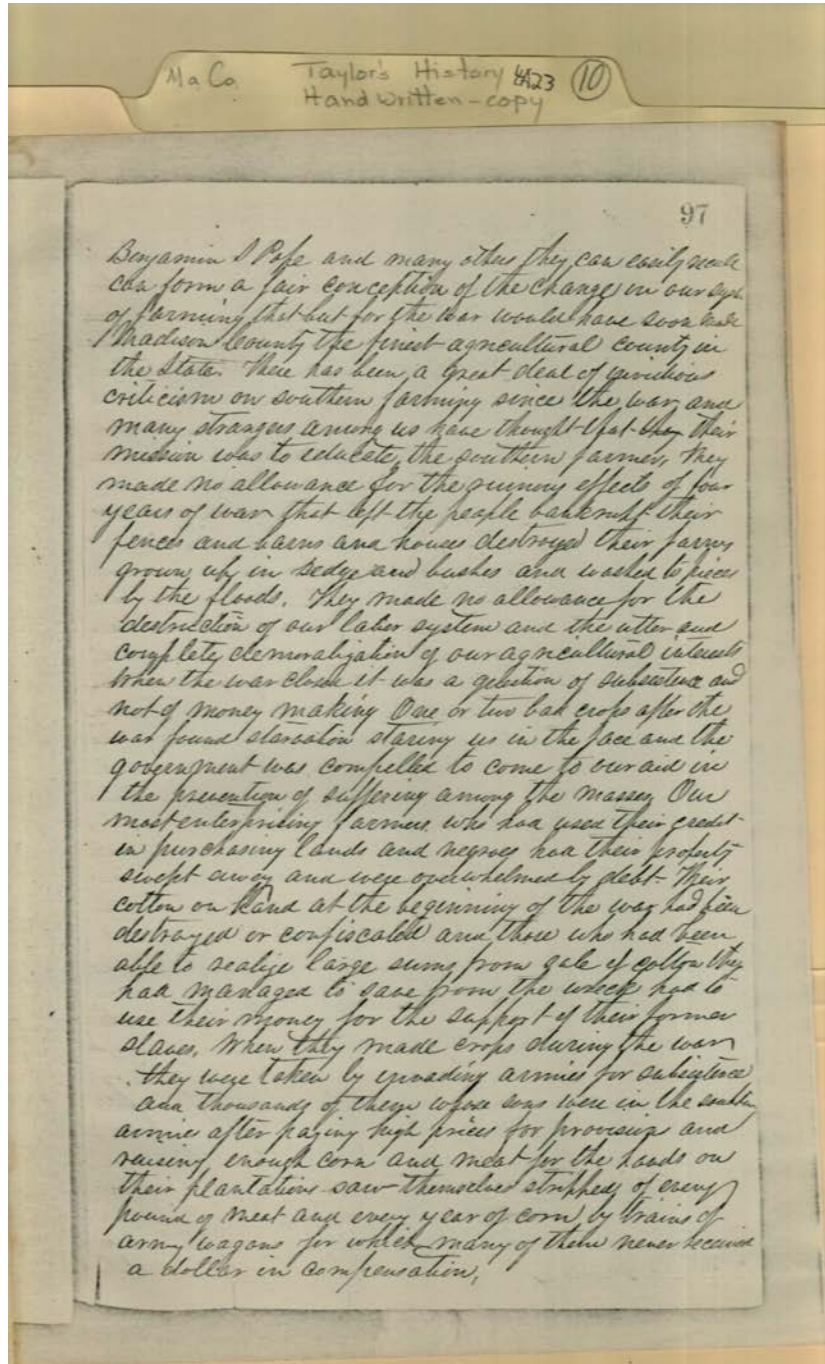 Ma Co. Taylor's History 4A23 10
Hand written - copy
97
Benjamin S Pope and many others they can easily recall
can form a fair conception of the change in our syst
of farming that but for the war would have soon made
Madison County the finest agricultural county in
the State. There has been a great deal of invidious
criticism on southern farming since the war and
many strangers among us have thought that they their
mission was to educate the southern farmer, They
made no allowance for the ruinous effects of four
years of war that left the people bankrupt their
fences and barns and houses destroyed their farms
grown up in sedge and bushes and washed to pieces
by the floods. They made no allowance for the
destruction of our labor system and the utter and
complete demoralization of our agricultural interests
When the war closed it was a question of subsistence and
not of money making One or two bad crops after the
war found starvation staring us in the face and the
government was compelled to come to our aid in
the prevention of suffering among the masses Our
most enterprising farmers who had used their credit
in purchasing lands and negroes had their property
swept away and were overwhelmed by debt. Their
cotton on hand at the beginning of the war had been
destroyed or confiscated and those who had been
able to realize large sums from sale of cotton they
had managed to save from the wreck had to
use their money for the support of their former
slaves. When they made crops during the war
they were taken by invading armies for subsistence
and thousands of them whose sons were in the southern
armies after paying high prices for provisions and
raising enough corn and meat for the hands on
their plantations saw themselves stripped of every
pound of meat and every year of corn by trains of
army wagons for which many of them never received
a dollar in compensation,